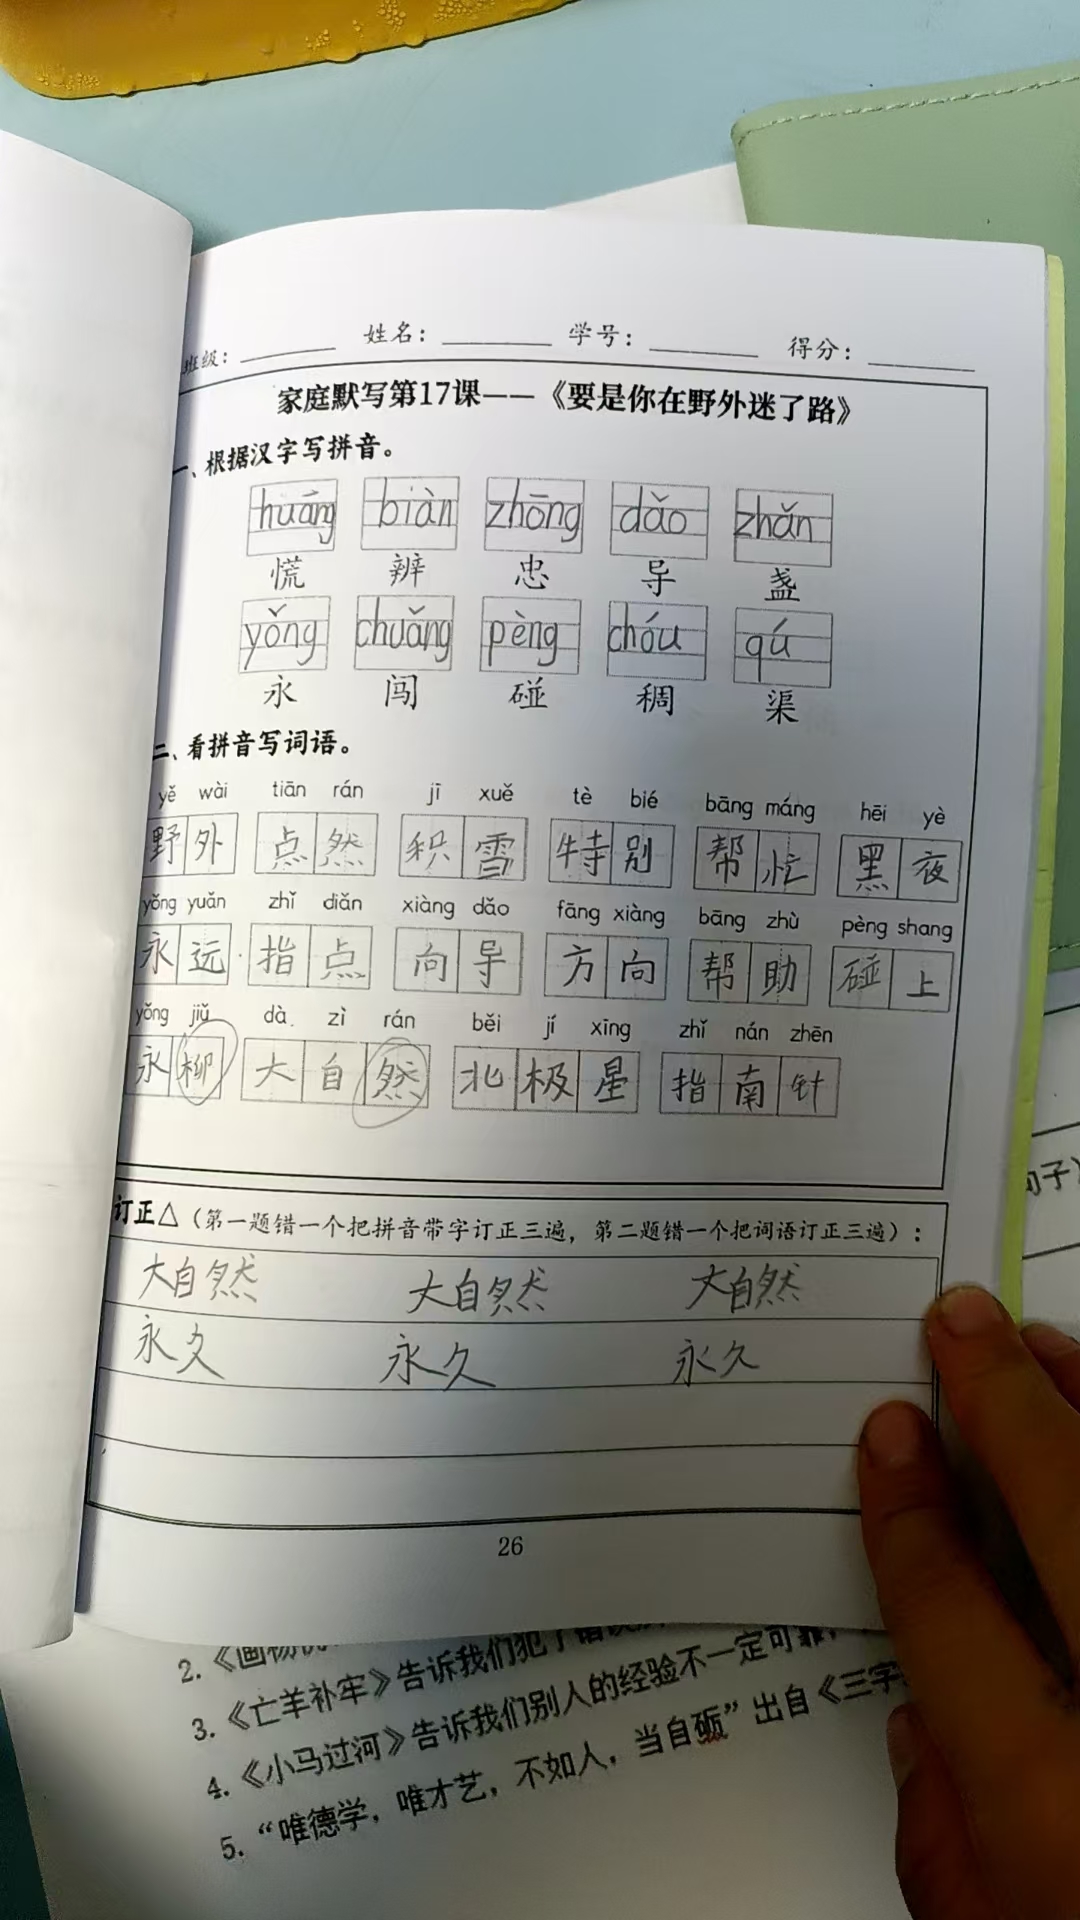 班级： 姓名： 学号： 得分：
家庭默写第17课——《要是你在野外迷了路》
一、根据汉字写拼音。
huāng biàn zhōng dǎo zhǎn
慌 辨 忠 导 盏
yǒng chuǎng pèng chóu qú
永 闯 碰 稠 渠
二、看拼音写词语。
yě wài tiān rán jī xuě tè bié bāng máng hēi yè
野外 点然 积雪 特别 帮忙 黑夜
yǒng yuǎn zhǐ diǎn xiàng dǎo fāng xiàng bāng zhù pèng shang
永远 指点 向导 方向 帮助 碰上
yǒng jiǔ dà zì rán běi jí xīng zhǐ nán zhēn
永柳 大自然 北极星 指南针
订正△（第一题错一个把拼音带字订正三遍，第二题错一个把词语订正三遍）：
大自然 大自然 大自然
永久 永久 永久
26
句子）
2.《画杨桃
3.《亡羊补牢》告诉我们犯了错误
4.《小马过河》告诉我们别人的经验不一定可靠，
5.“唯德学，唯才艺，不如人，当自砺”出自《三字